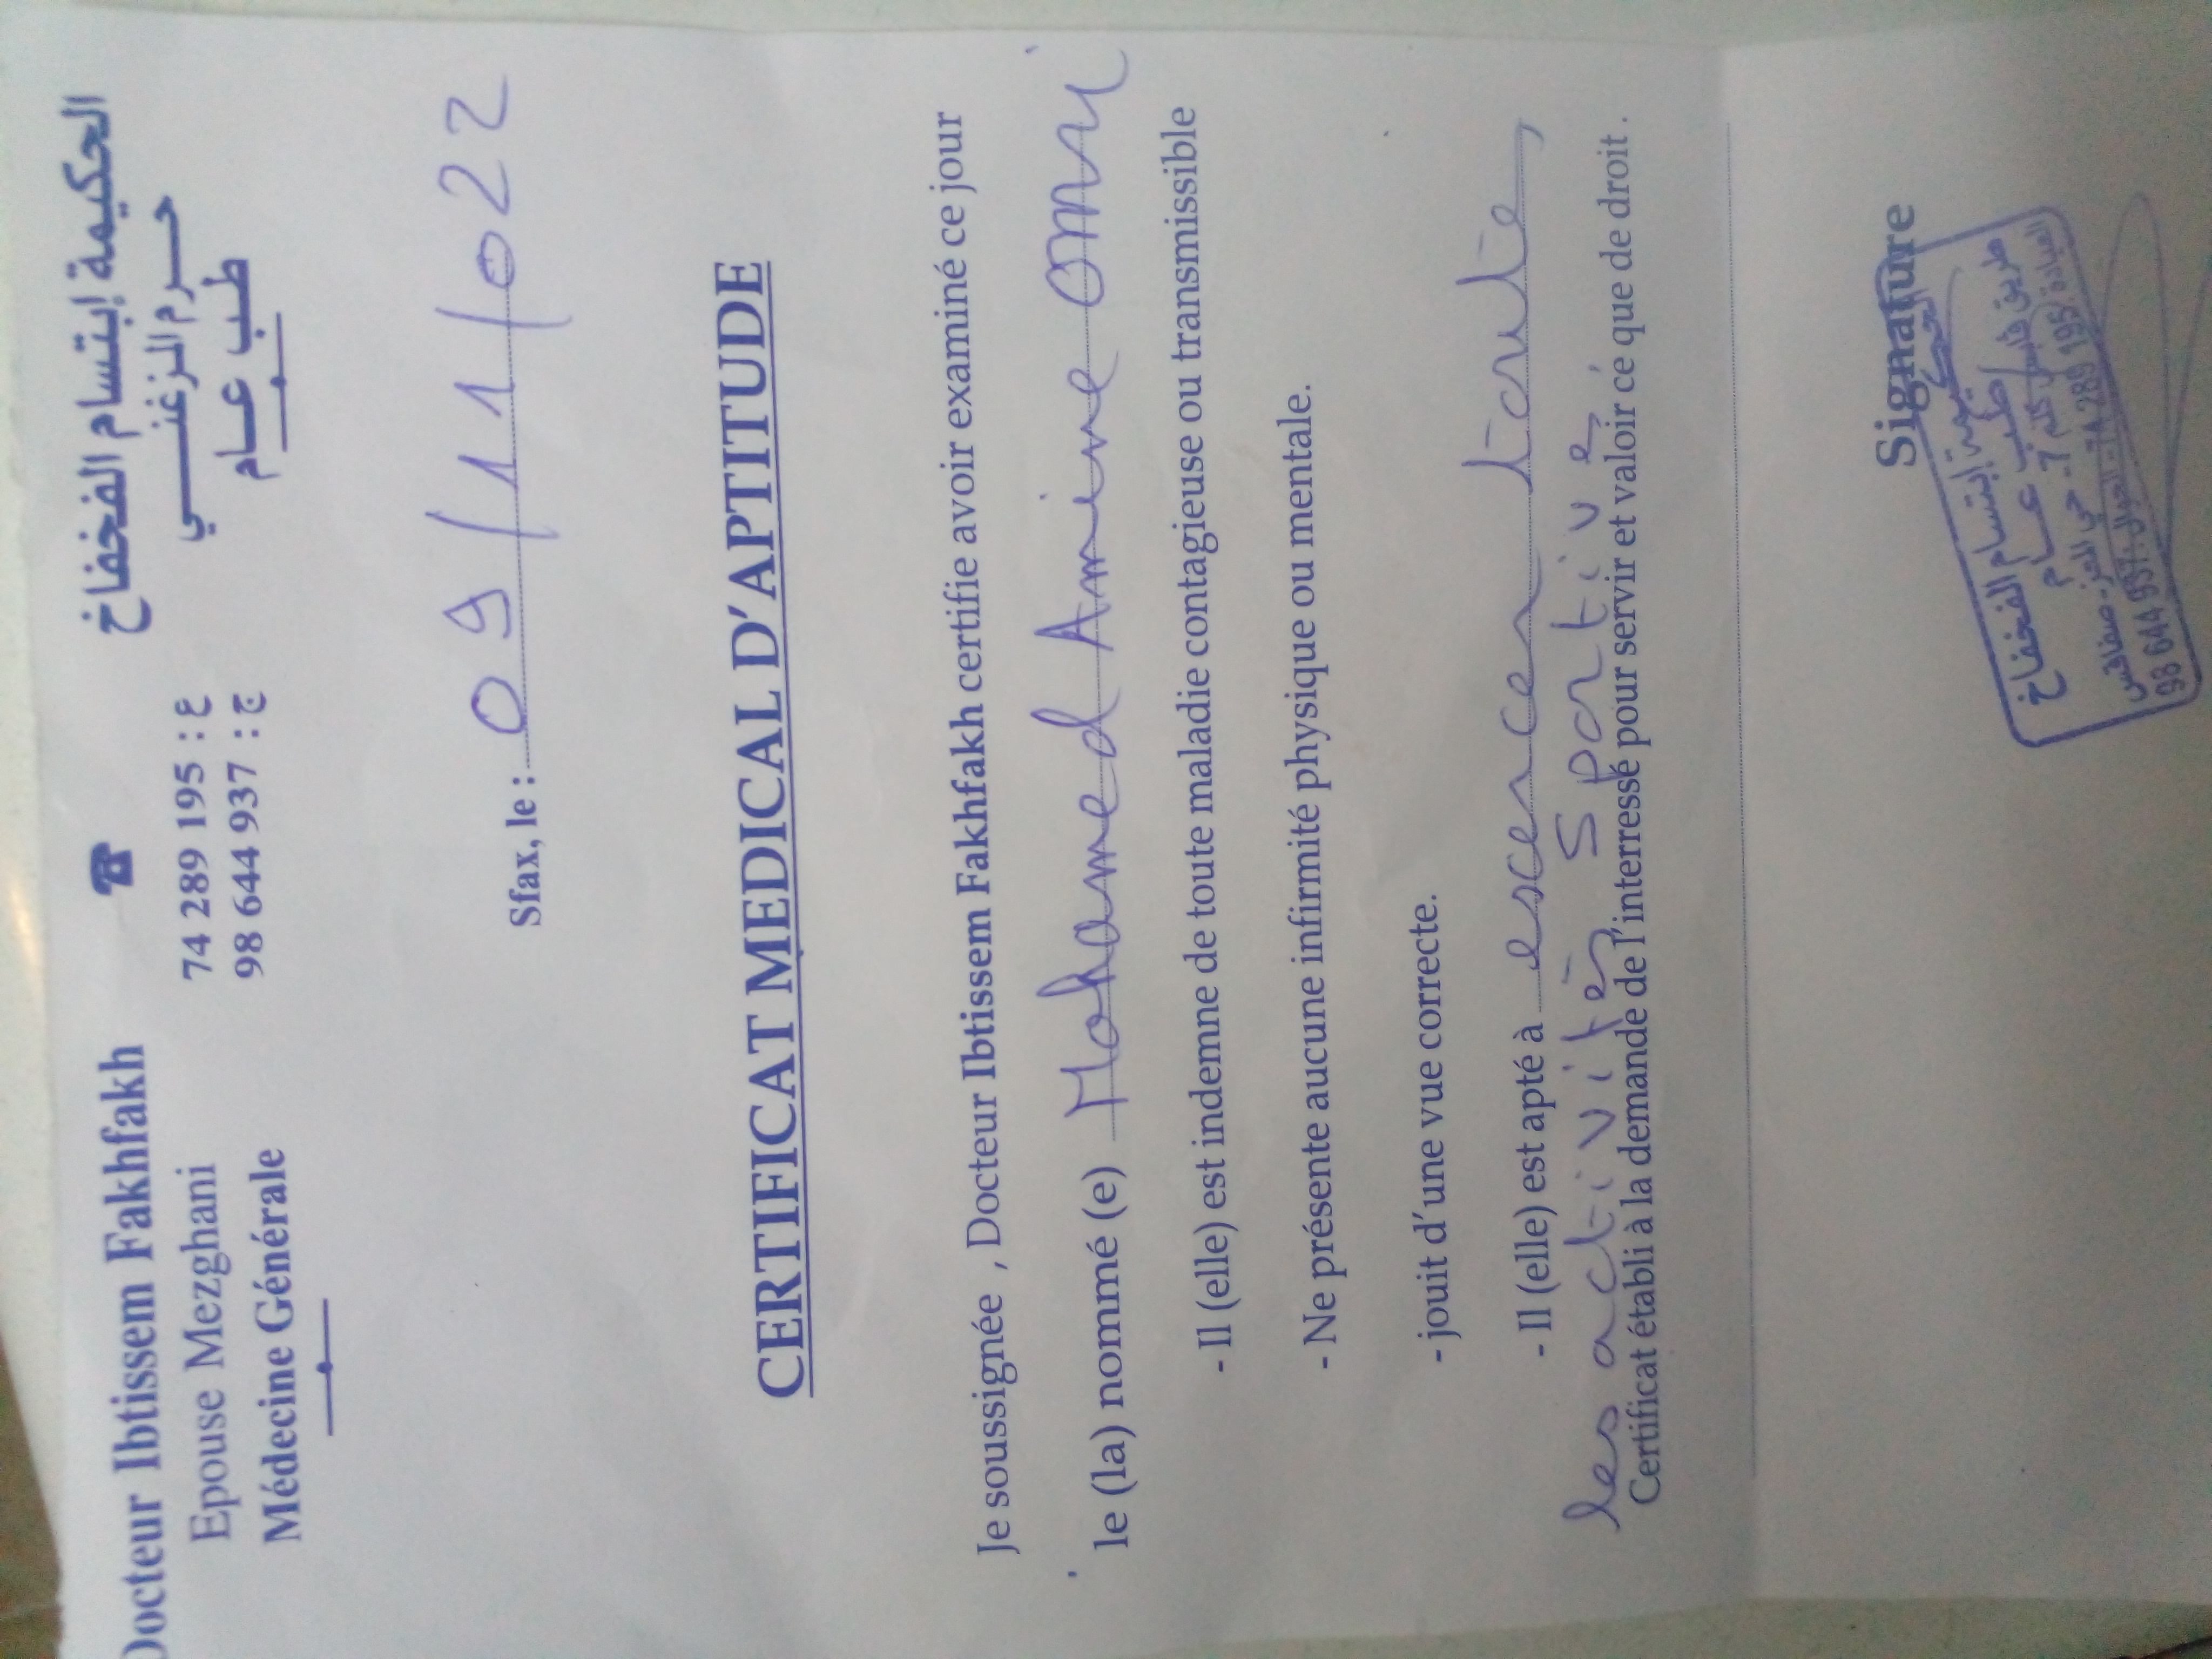 Docteur Ibtissem Fakhfakh
Epouse Mezghani
Médecine Générale
☎
74 289 195 : ع
98 644 937 : ج
الحكيمة إبتسام الفخفاخ
حرم المزغني
طب عام
Sfax, le : 09/11/022
CERTIFICAT MEDICAL D'APTITUDE
Je soussignée , Docteur Ibtissem Fakhfakh certifie avoir examiné ce jour
le (la) nommé (e) Mohamed Amine Omri
- Il (elle) est indemne de toute maladie contagieuse ou transmissible
- Ne présente aucune infirmité physique ou mentale.
- jouit d'une vue correcte.
- Il (elle) est apté à escercer toute
les activités sportive,
Certificat établi à la demande de l'interressé pour servir et valoir ce que de droit .
Signature
الحكيمة إبتسام الفخفاخ
طب عام
طريق قابس كلم 7 - حي العز - صفاقس
العيادة : 74 289 195 - الجوال : 98 644 937